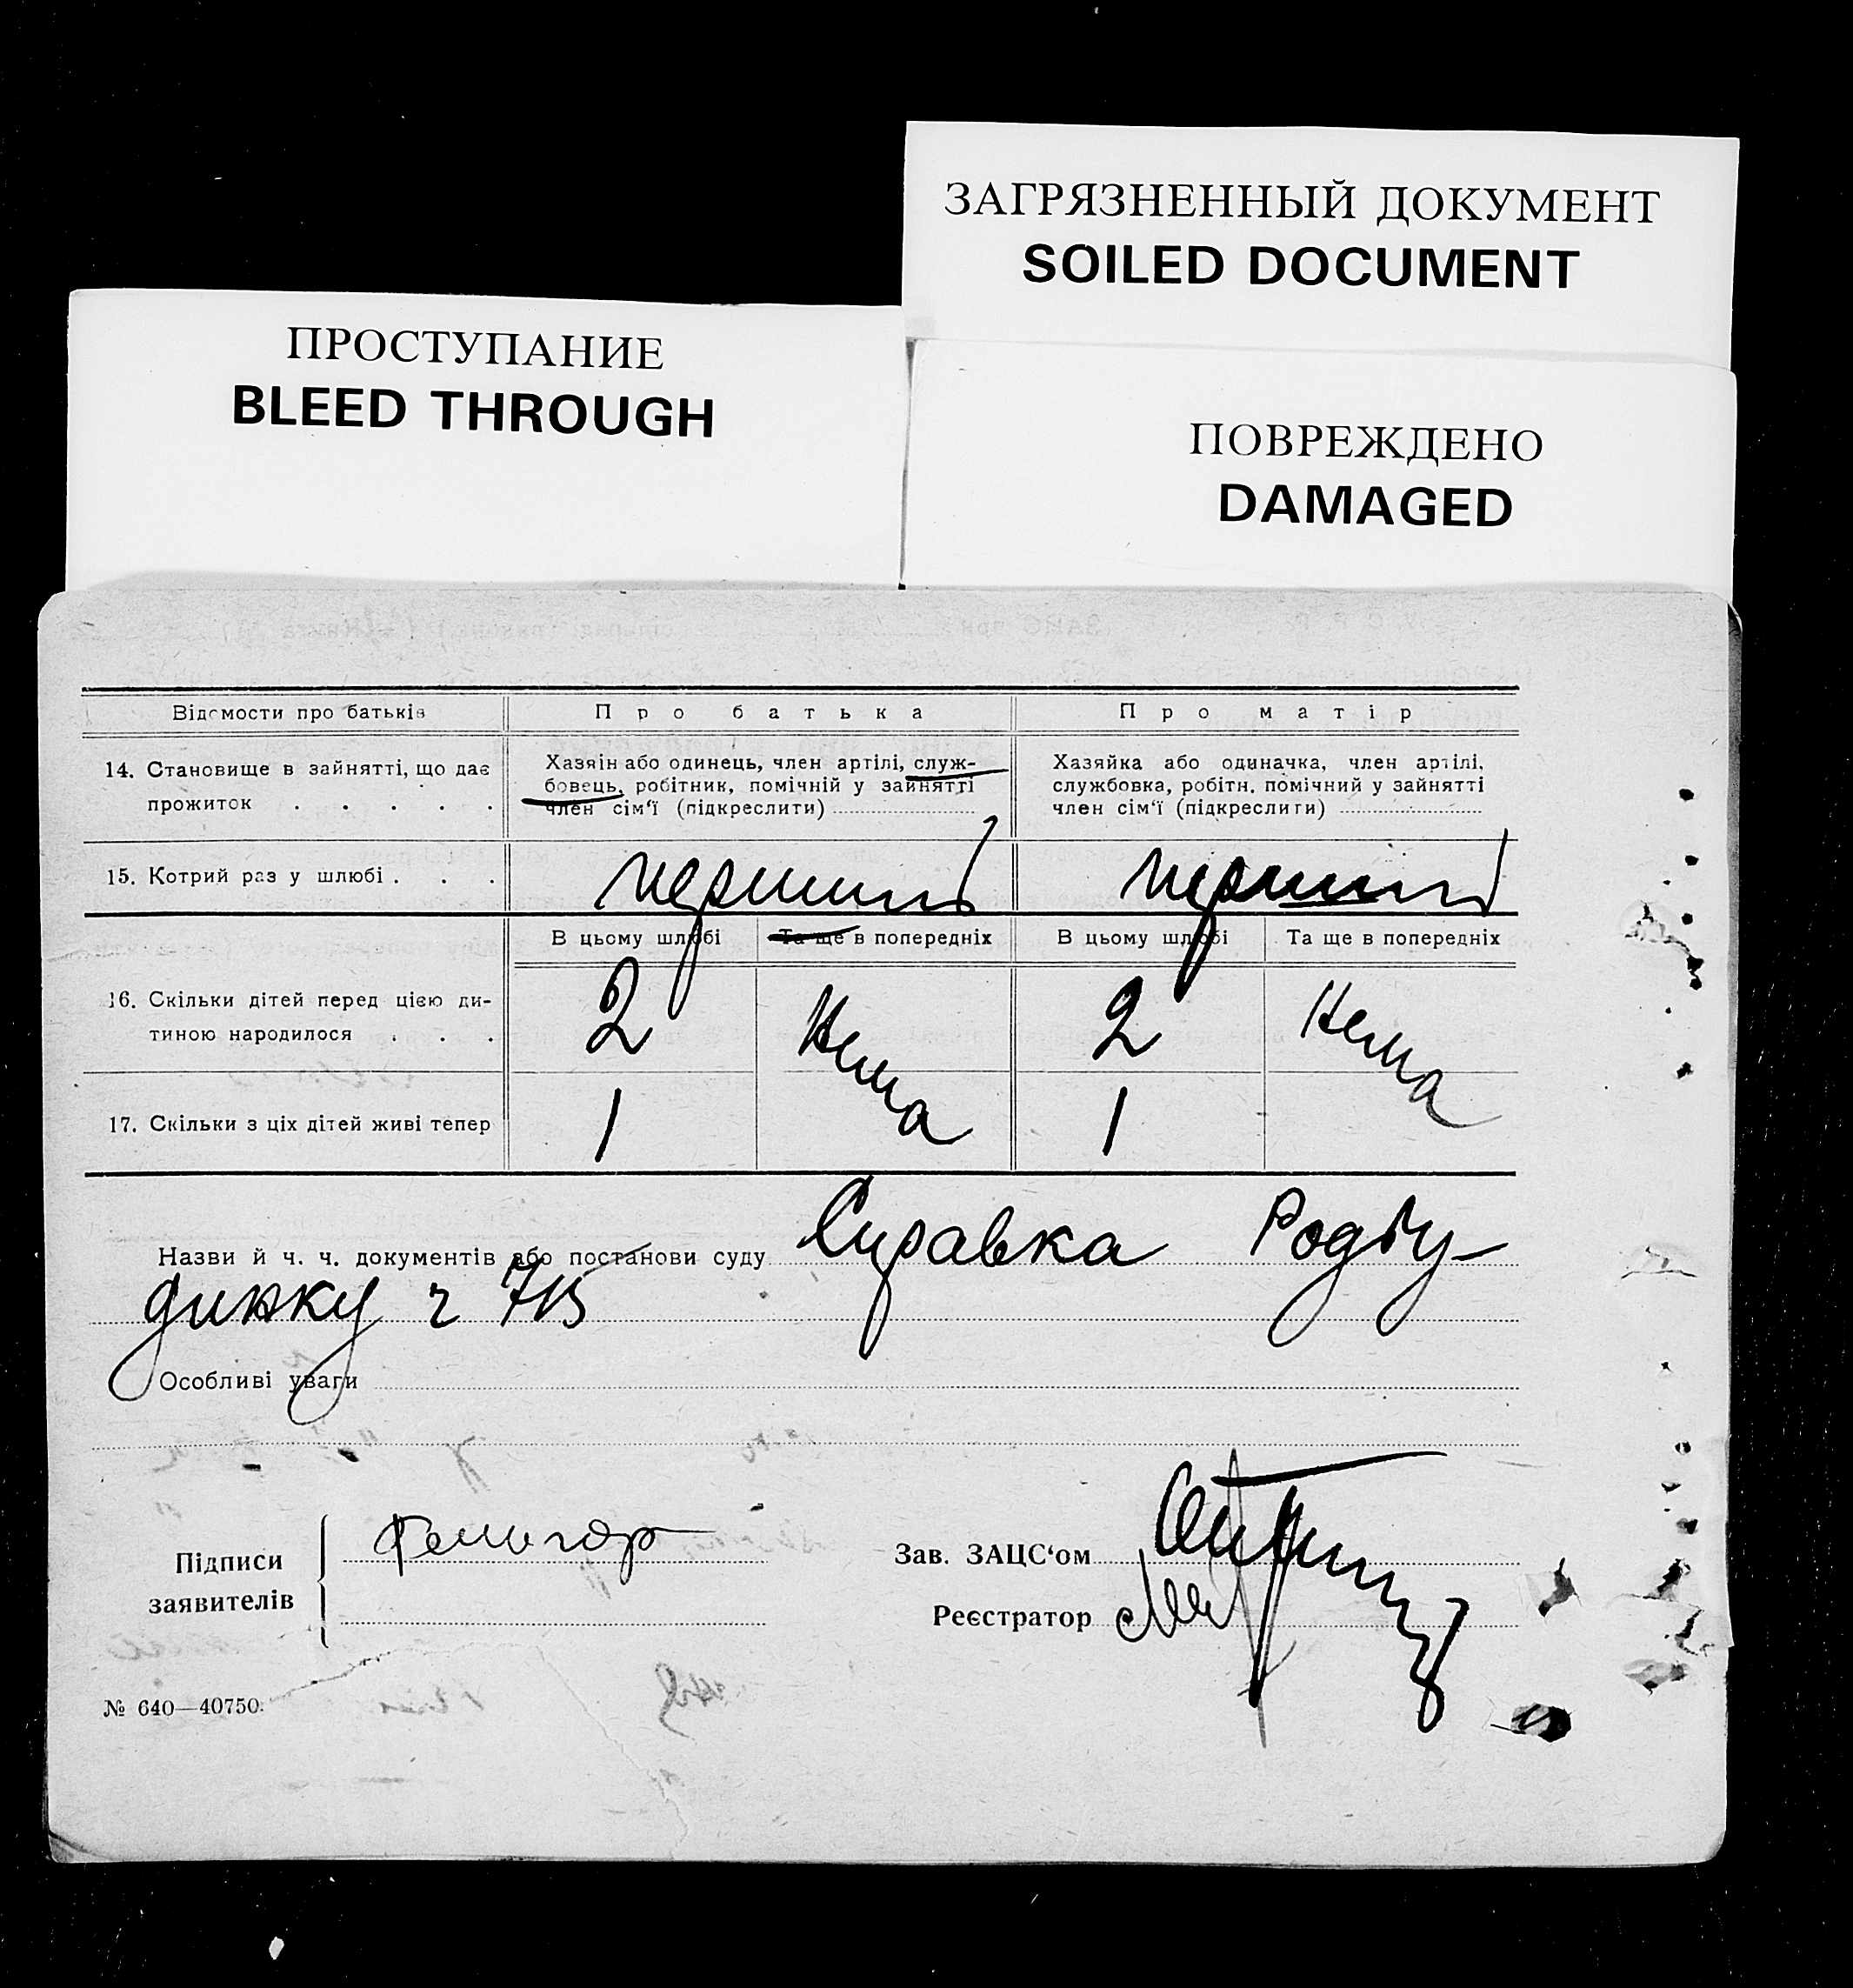 ЗАГРЯЗНЕННЫЙ ДОКУМЕНТ
SOILED DOCUMENT
ПРОСТУПАНИЕ
BLEED THROUGH
ПОВРЕЖДЕНО
DAMAGED
Відомости про батьків
Про батька
Про матір
14. Становище в зайнятті, що дає
прожиток . . . . .
Хазяін або одинець, член артілі, служ-
бовець, робітник, помічній у зайнятті
член сім'ї (підкреслити)
Хазяйка або одиначка, член артілі,
службовка, робітн. помічний у зайнятті
член сім'ї (підкреслити)
15. Котрий раз у шлюбі . . .
перший
перший
В цьому шлюбі
Та ще в попередніх
В цьому шлюбі
Та ще в попередніх
16. Скільки дітей перед цією ди-
тиною народилося . . .
2
Нема
2
Нема
17. Скільки з ціх дітей живі тепер
1
1
Назви й ч. ч. документів або постанови суду Справка Родбу-
динку ч 715
Особливі уваги
Підписи
заявителів
Зав. ЗАЦС'ом
Реєстратор
№ 640—40750.